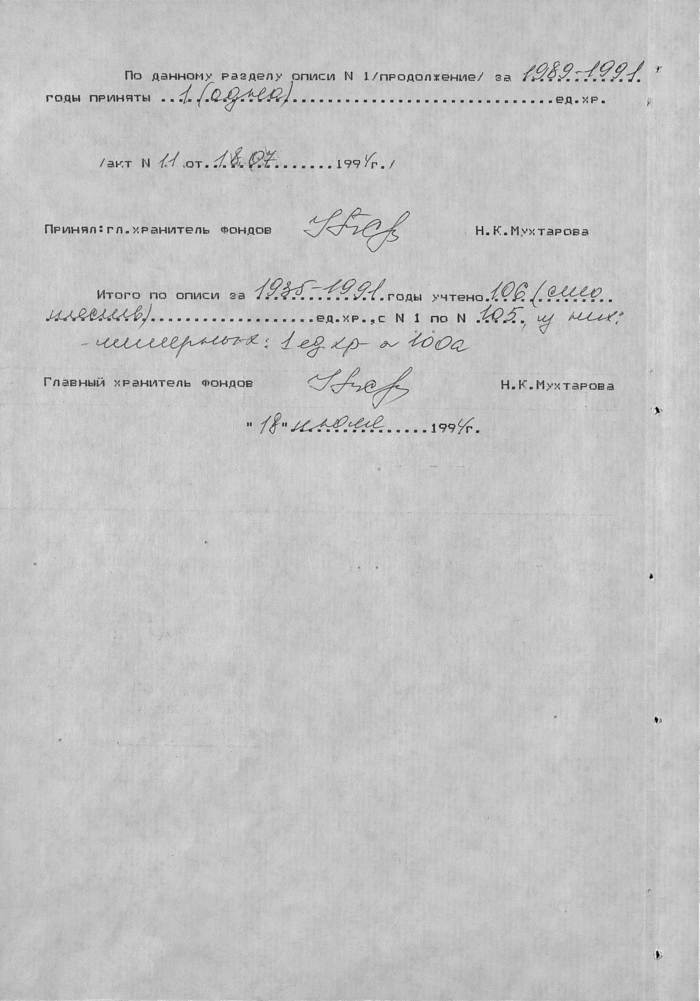 По данному разделу описи N 1/продолжение/ за 1989-1991
годы приняты ..1 (одна)..............................ед.хр.
/акт N 11 от.18.07.......1994г./
Принял:гл.хранитель фондов Н.К.Мухтарова
Итого по описи за 1935-1991.годы учтено.106 (сто
шесть)...................ед.хр.,с N 1 по N .105., из них:
- литерных: 1 ед хр - 100а
Главный хранитель фондов Н.К.Мухтарова
"18"июля............1994г.